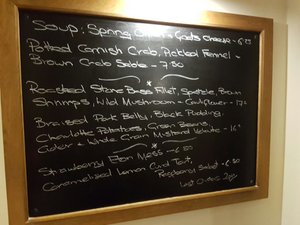 Soup: Spring Onion & Goats Cheese - 6.25
Potted Cornish Crab, Pickled Fennel &
Brown Crab Sable - 7.50
*
Roasted Stone Bass Fillet, Spatzle, Brown
Shrimps, Wild Mushroom & Cauliflower - 17
Braised Pork Belly, Black Pudding,
Charlotte Potatoes, Green Beans,
Cider & Whole Grain Mustard Velouté - 16
*
Strawberry Eton Mess - 6.50
Caramelised Lemon Curd Tart,
Raspberry Sorbet - 6.50
Last Orders 2pm